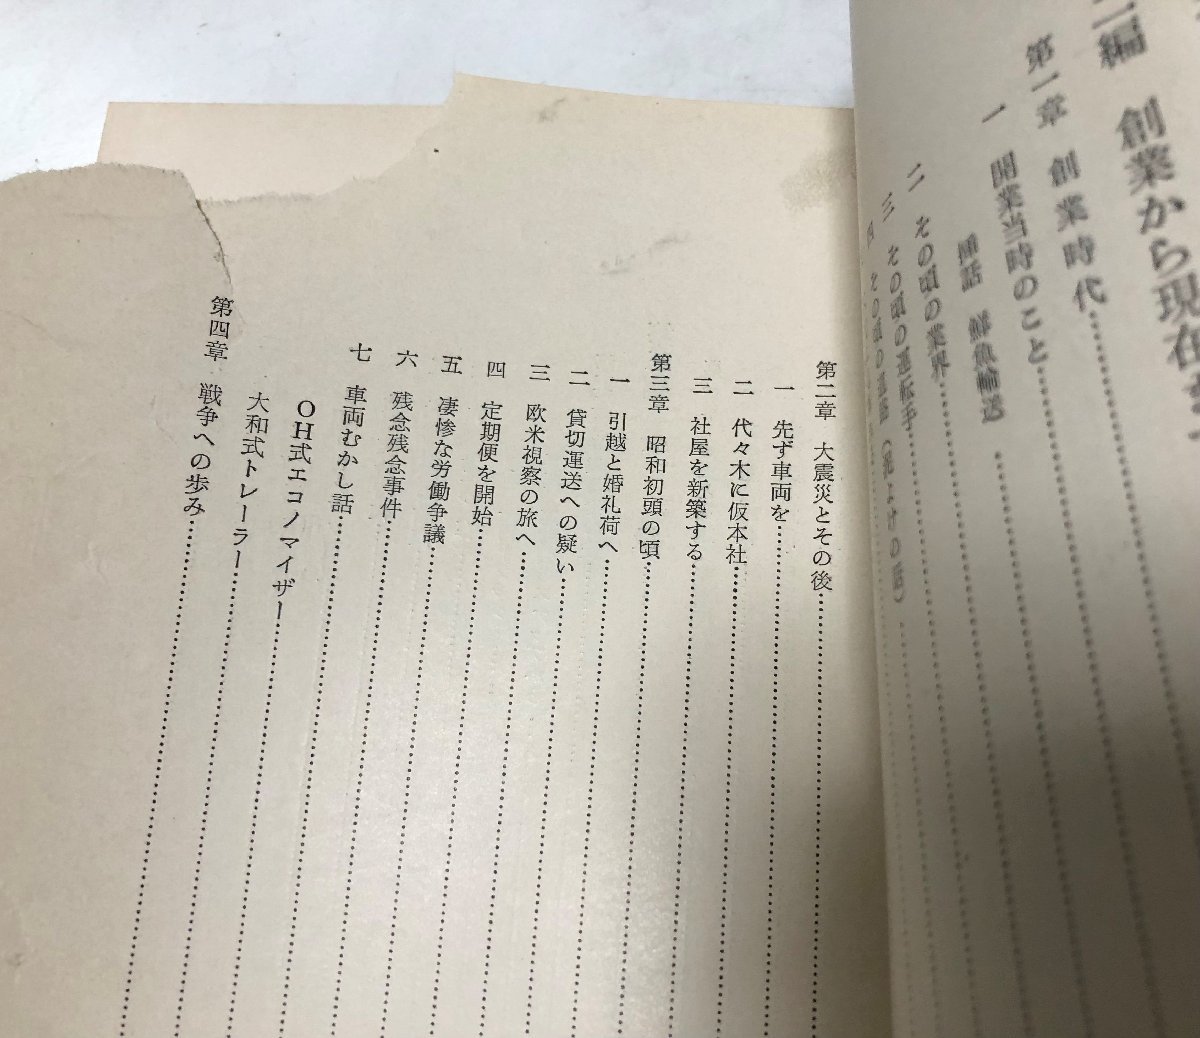 二編 創業から現在
第一章 創業時代
一 開業当時のこと
挿話 鮮魚輸送
二 その頃の業界
三 その頃の運転手
四 その頃の道路
第二章 大震災とその後
一 先ず車両を
二 代々木に仮本社
三 社屋を新築する
第三章 昭和初頭の頃
一 引越と婚礼荷へ
二 貸切運送への疑い
三 欧米視察の旅へ
四 定期便を開始
五 凄惨な労働争議
六 残念残念事件
七 車両むかし話
OH式エコノマイザー
大和式トレーラー
第四章 戦争への歩み